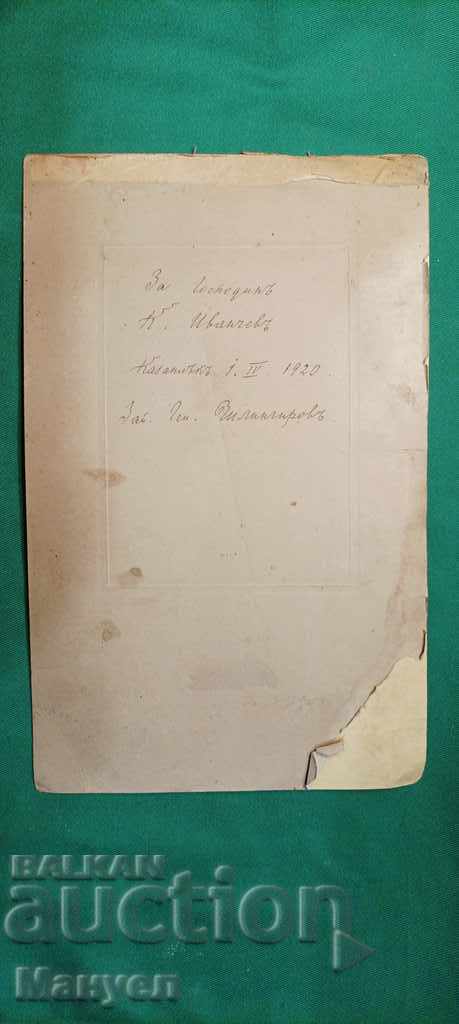 За Господинъ
К. Иванчевъ
Казанлъкъ 1. IV 1920.
Зап. Ген. Чилингировъ
BALKAN
auction
Мануел